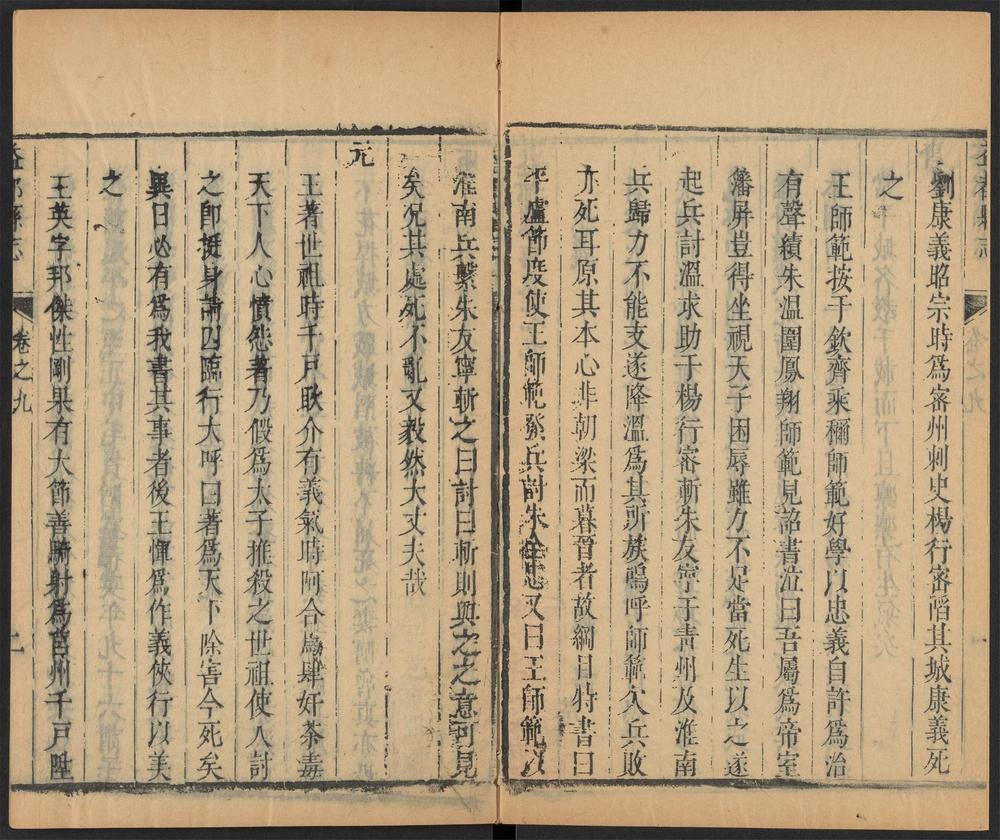 劉康義昭宗時爲密州刺史楊行密䧟其城康義死
之
王師範按于欽齊乘稱師範好學以忠義自許爲治
有聲績朱溫圍鳳翔師範見詔書泣曰吾屬爲帝室
藩屏豈得坐視天子困辱雖力不足當死生以之遂
起兵討溫求助于楊行密斬朱友寧于青州及淮南
兵歸力不能支遂降溫爲其所族嗚呼師範入兵敗
亦死耳原其本心非朝梁而暮晉者故綱目特書曰
平盧節度使王師範發兵討朱全忠又曰王師範以
淮南兵繫朱友寧斬之曰討曰斬則與之之意可見
矣况其處死不亂又毅然大丈夫哉
元
王著世祖時千戶耿介有義氣時阿合馬肆奸荼毒
天下人心憤怨著乃假爲太子椎殺之世祖使人討
之卽挺身請囚臨行大呼曰著爲天下除害今死矣
異日必有爲我書其事者後王惲爲作義俠行以美
之
王英字邦傑性剛果有大節善騎射爲莒州千戶陞
益都縣志
卷之九
二